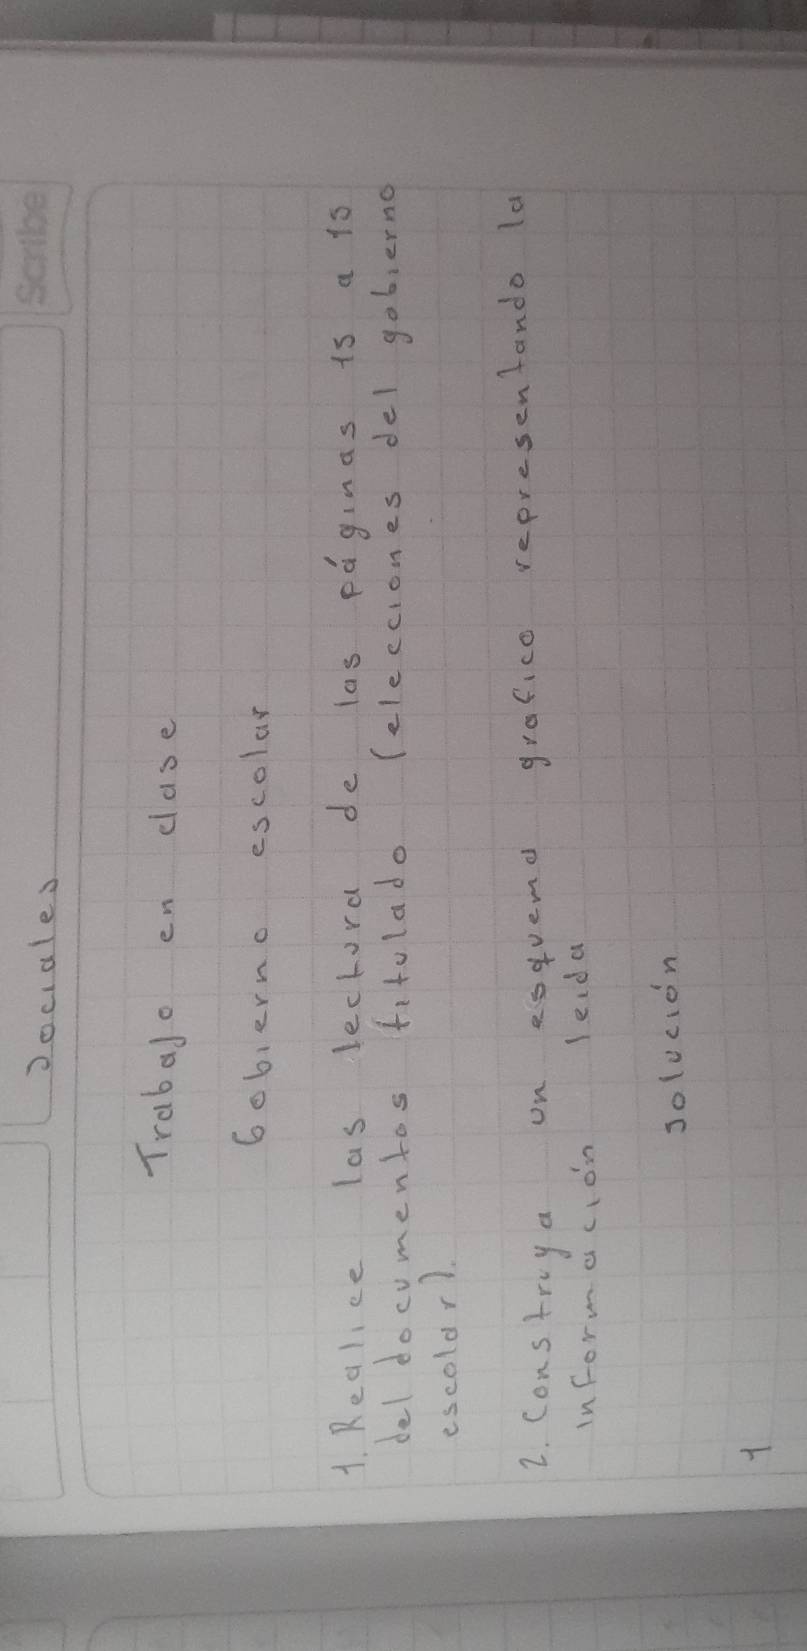 Scribe
Sociales
Trabajo en clase
Gobierno escolar
1. Realice las lectura de las páginas 15 a 15
del documentos titulado (elecciones del gobierno
escolar).
2. Construya un esquema grafico representando la
información leida
solución
1